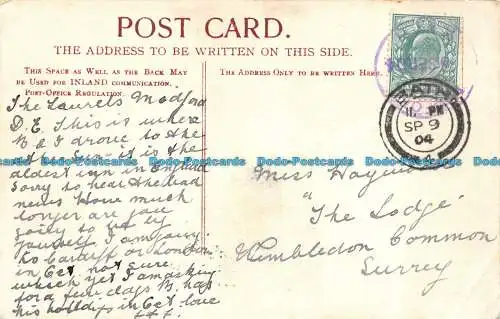 POST CARD.
THE ADDRESS TO BE WRITTEN ON THIS SIDE.
THIS SPACE AS WELL AS THE BACK MAY
BE USED FOR INLAND COMMUNICATION.
POST-OFFICE REGULATION.
THE ADDRESS ONLY TO BE WRITTEN HERE.
BATH
SP 9
04
The Laurels
D. E. This is where
B & I drove to the
it is the
oldest inn in England
Sorry to hear the bad
news How much
longer are you
going to be by
yourself I am going
to Cardiff or London
in Oct not sure
which yet I am asking
for a few days B. has
his holidays in Oct love
Miss
"The Lodge"
Wimbledon Common
Surrey
Dodo-Postcards Dodo-Postcards Dodo-Postcards Dodo-Postcards